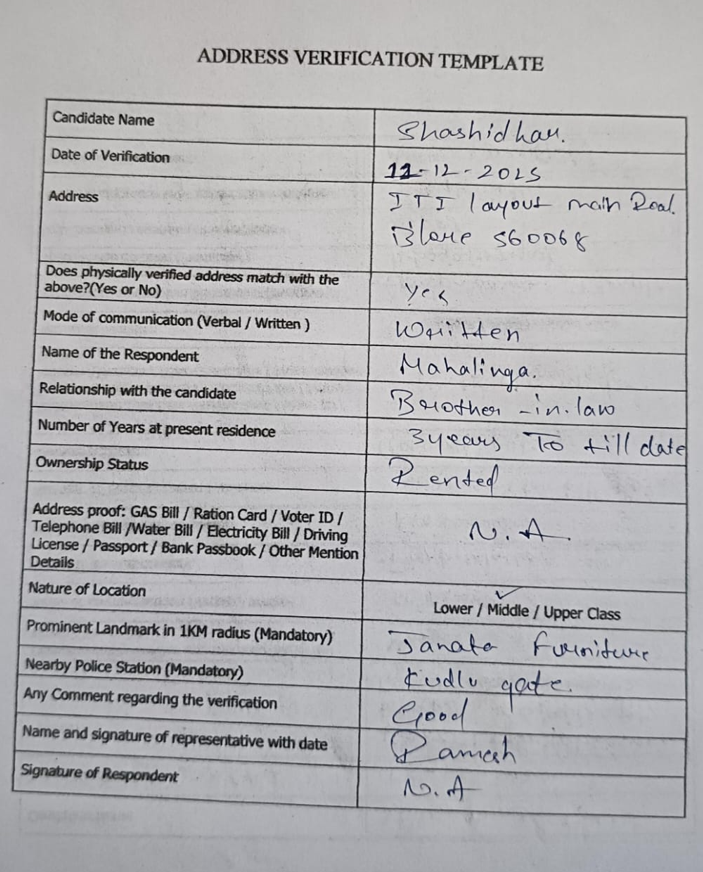 ADDRESS VERIFICATION TEMPLATE
Candidate Name Shashidhar.
Date of Verification 12-12-2025
Address ITI layout main Road.
B'lore 560068
Does physically verified address match with the
above?(Yes or No) Yes
Mode of communication (Verbal / Written ) Written
Name of the Respondent Mahalinga.
Relationship with the candidate Brother-in.law
Number of Years at present residence 3years To till date
Ownership Status Rented
Address proof: GAS Bill / Ration Card / Voter ID /
Telephone Bill /Water Bill / Electricity Bill / Driving
License / Passport / Bank Passbook / Other Mention
Details N.A.
Nature of Location Lower / Middle / Upper Class
Prominent Landmark in 1KM radius (Mandatory) Janata Furniture
Nearby Police Station (Mandatory) Kudlu gate.
Any Comment regarding the verification Good
Name and signature of representative with date Ramesh
Signature of Respondent N.A